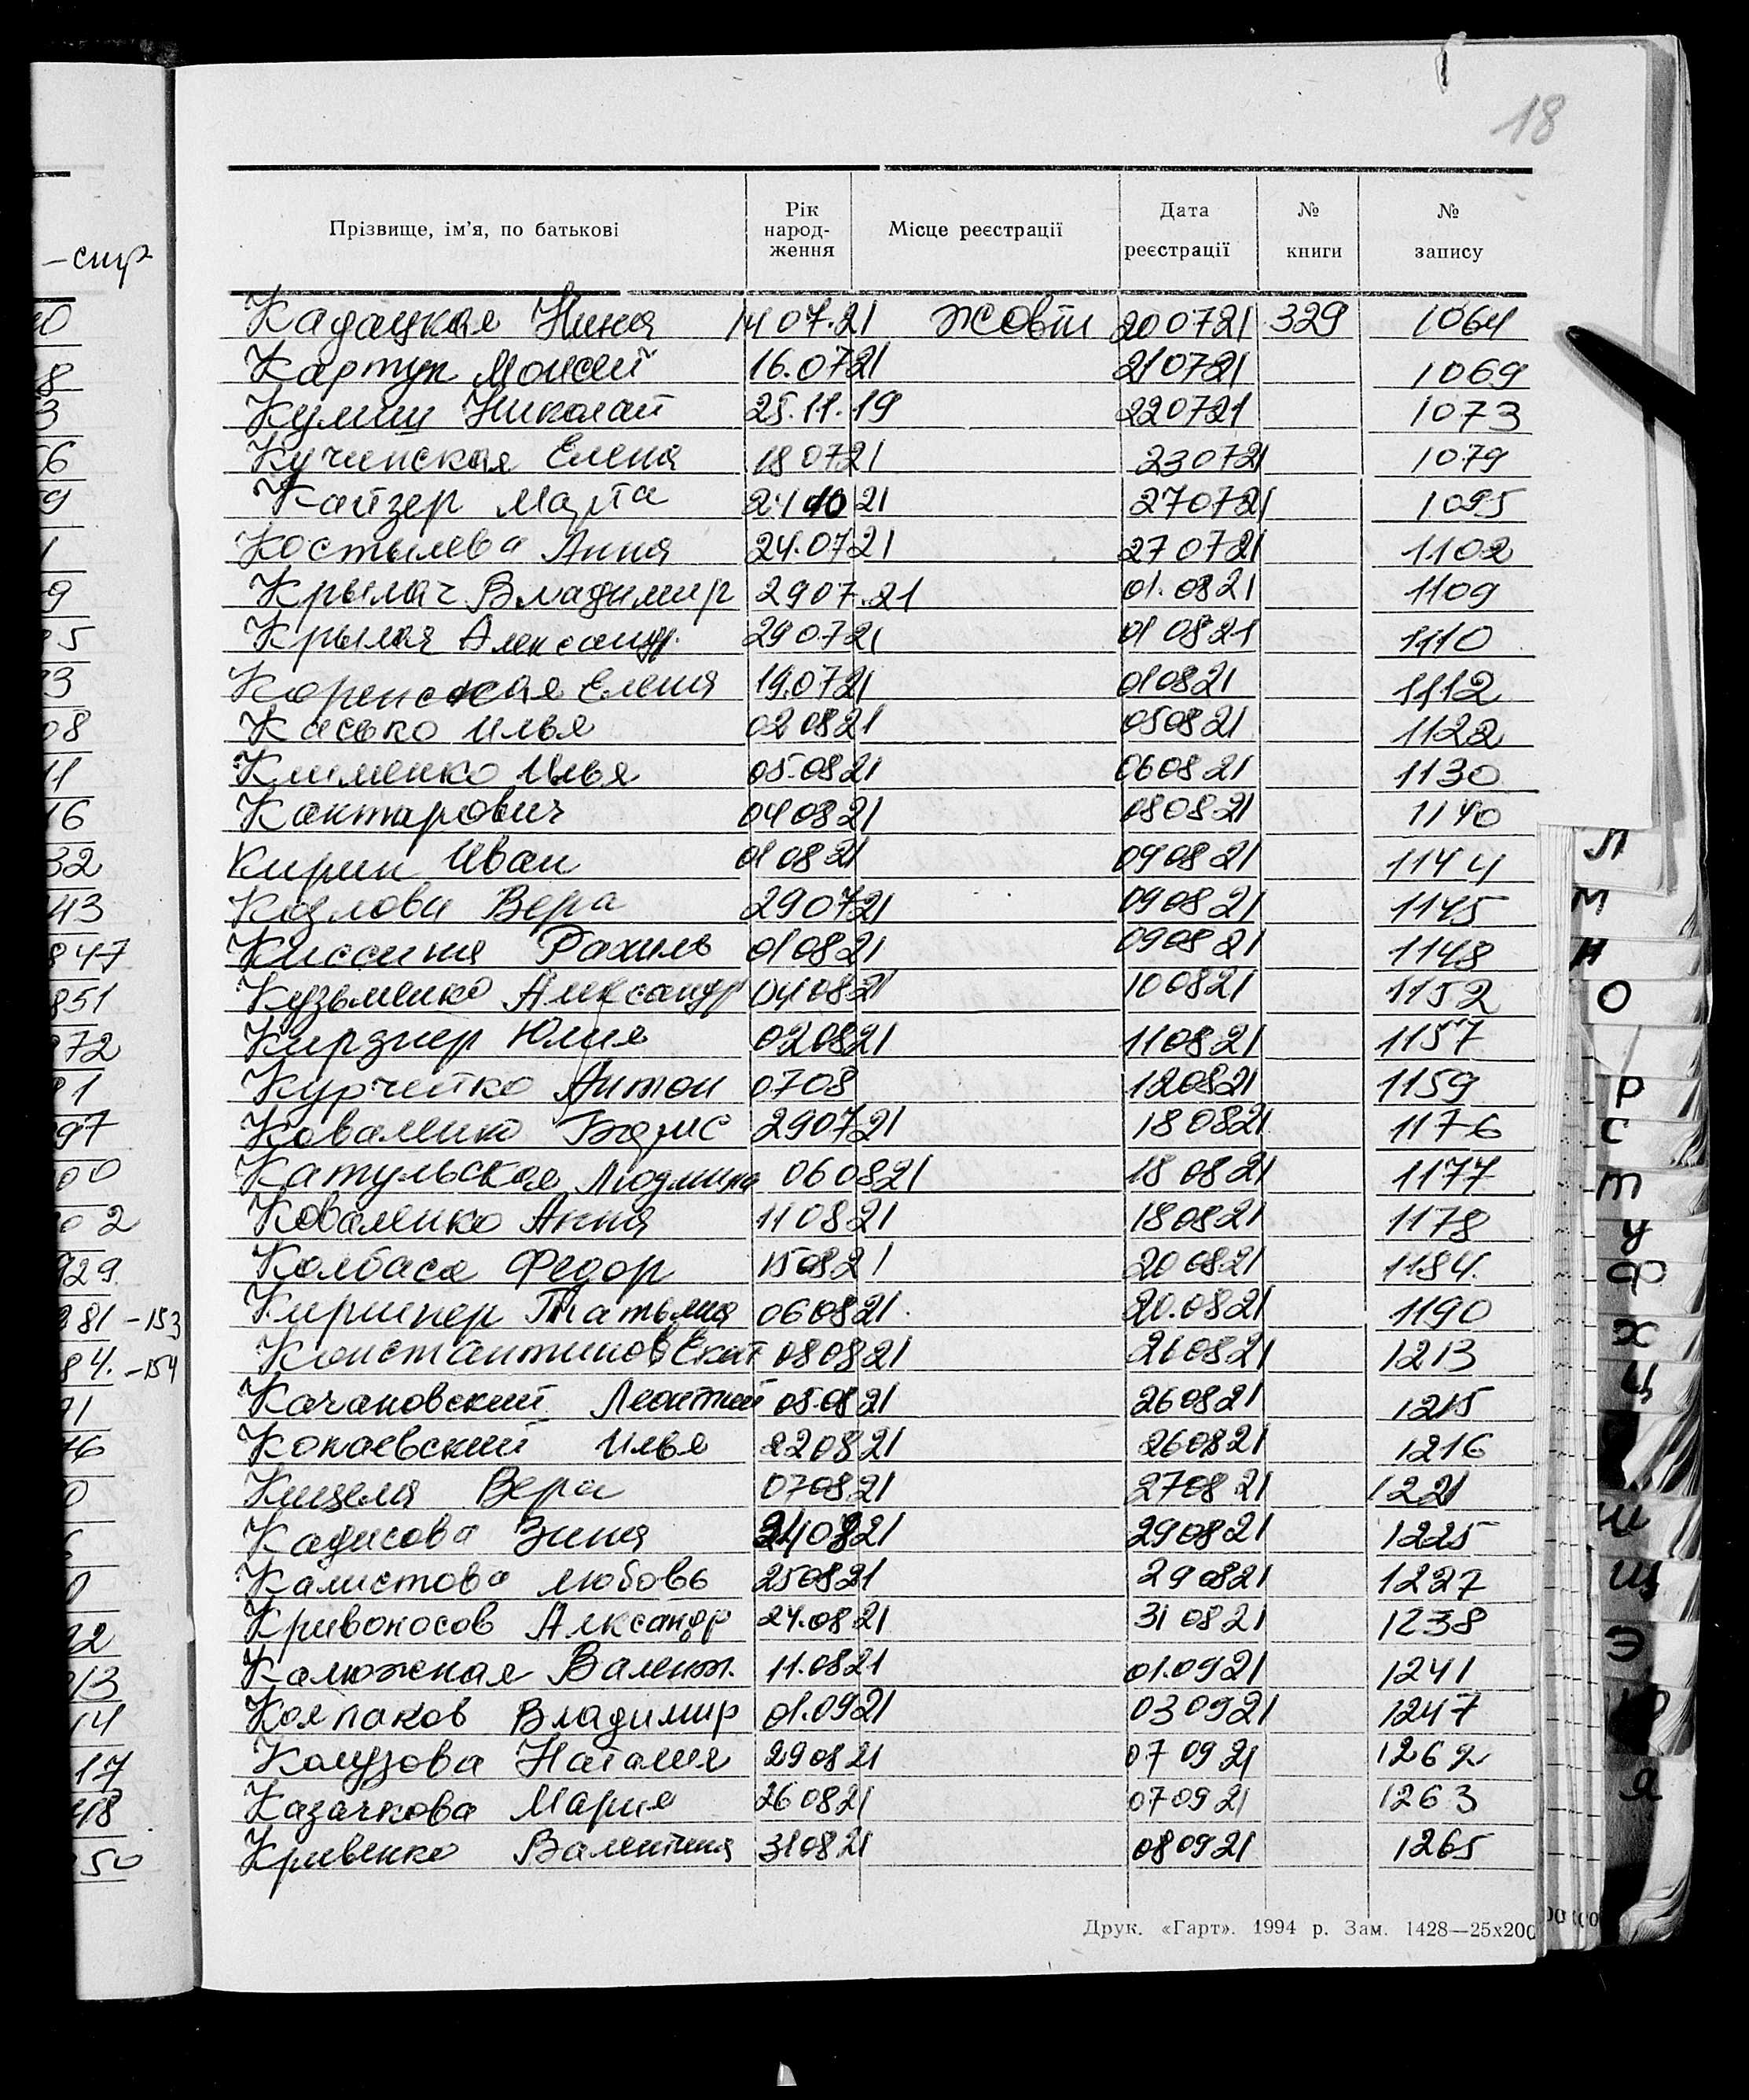 18
Прізвище, ім'я, по батькові | Рік народження | Місце реєстрації | Дата реєстрації | № книги | № запису
Кадацкая Нина 14 07.21 Жовт 20 07 21 329 1064
Картун Моисей 16.07 21 21 07 21 1069
Кулиш Николай 25.11.19 22 07 21 1073
Кучинская Елена 18 07 21 23 07 21 1079
Кайзер Марта 21 27 07 21 1095
Костылева Анна 24.07 21 27 07 21 1102
Крылач Владимир 29 07.21 01.08 21 1109
Крылач Александр. 29 07 21 01 08 21 1110
Коренская Елена 19.07 21 01 08 21 1112
Касько Илья 02 08 21 05 08 21 1122
Клименко Илья 05.08 21 06 08 21 1130
Кантарович 04 08 21 08 08 21 1140
Кирин Иван 01 08 21 09 08 21 1144
Козлова Вера 29 07 21 09 08 21 1145
Киссина Рахиль 01 08 21 09 08 21 1148
Кузьменко Александр 04 08 21 10 08 21 1152
Кирзнер Юлия 02 08 21 11 08 21 1157
Курчейко Антон 07 08 12 08 21 1159
Коваленко Борис 29 07 21 18 08 21 1176
Катульская Людмила 06 08 21 18 08 21 1177
Коваленко Анна 11 08 21 18 08 21 1178
Колбаса Федор 15 08 21 20 08 21 1184.
Киршнер Татьяна 06 08 21. 20.08 21 1190
Константинов Екат 08 08 21 26 08 21 1213
Качановский Леонтий 05.08 21 26 08 21 1215
Конаевский Илья 22 08 21 26 08 21 1216
Вера 07 08 21 27 08 21 1221
Кадисова Зина 24 08 21 29 08 21 1225
Калистова Любовь 25 08 21 29 08 21 1227
Кривоносов Александр 24.08 21 31 08 21 1238
Калюжная Валент. 11.08 21 01.09 21 1241
Колпаков Владимир 01.09 21 03 09 21 1247
Колузова Наталия 29 08 21 07 09 21 1262
Казачкова Мария 26 08 21 07 09 21 1263
Кривенко Валентина 31 08 21 08 09 21 1265
Друк. «Гарт». 1994 р. Зам. 1428—25х200
-стр
847
851
929
-153
-154
Л
М
Н
О
Р
С
Т
У
Ф
Х
Ц
Ш
Щ
Э
Ю
Я